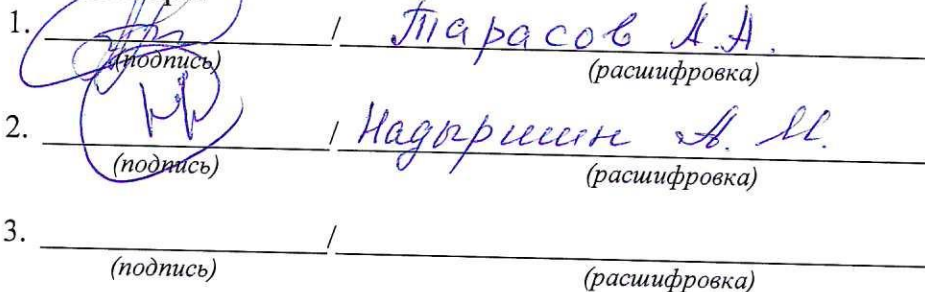 1. / Тарасов А.А.
(подпись) (расшифровка)
2. / Надыршин А. И.
(подпись) (расшифровка)
3. /
(подпись) (расшифровка)